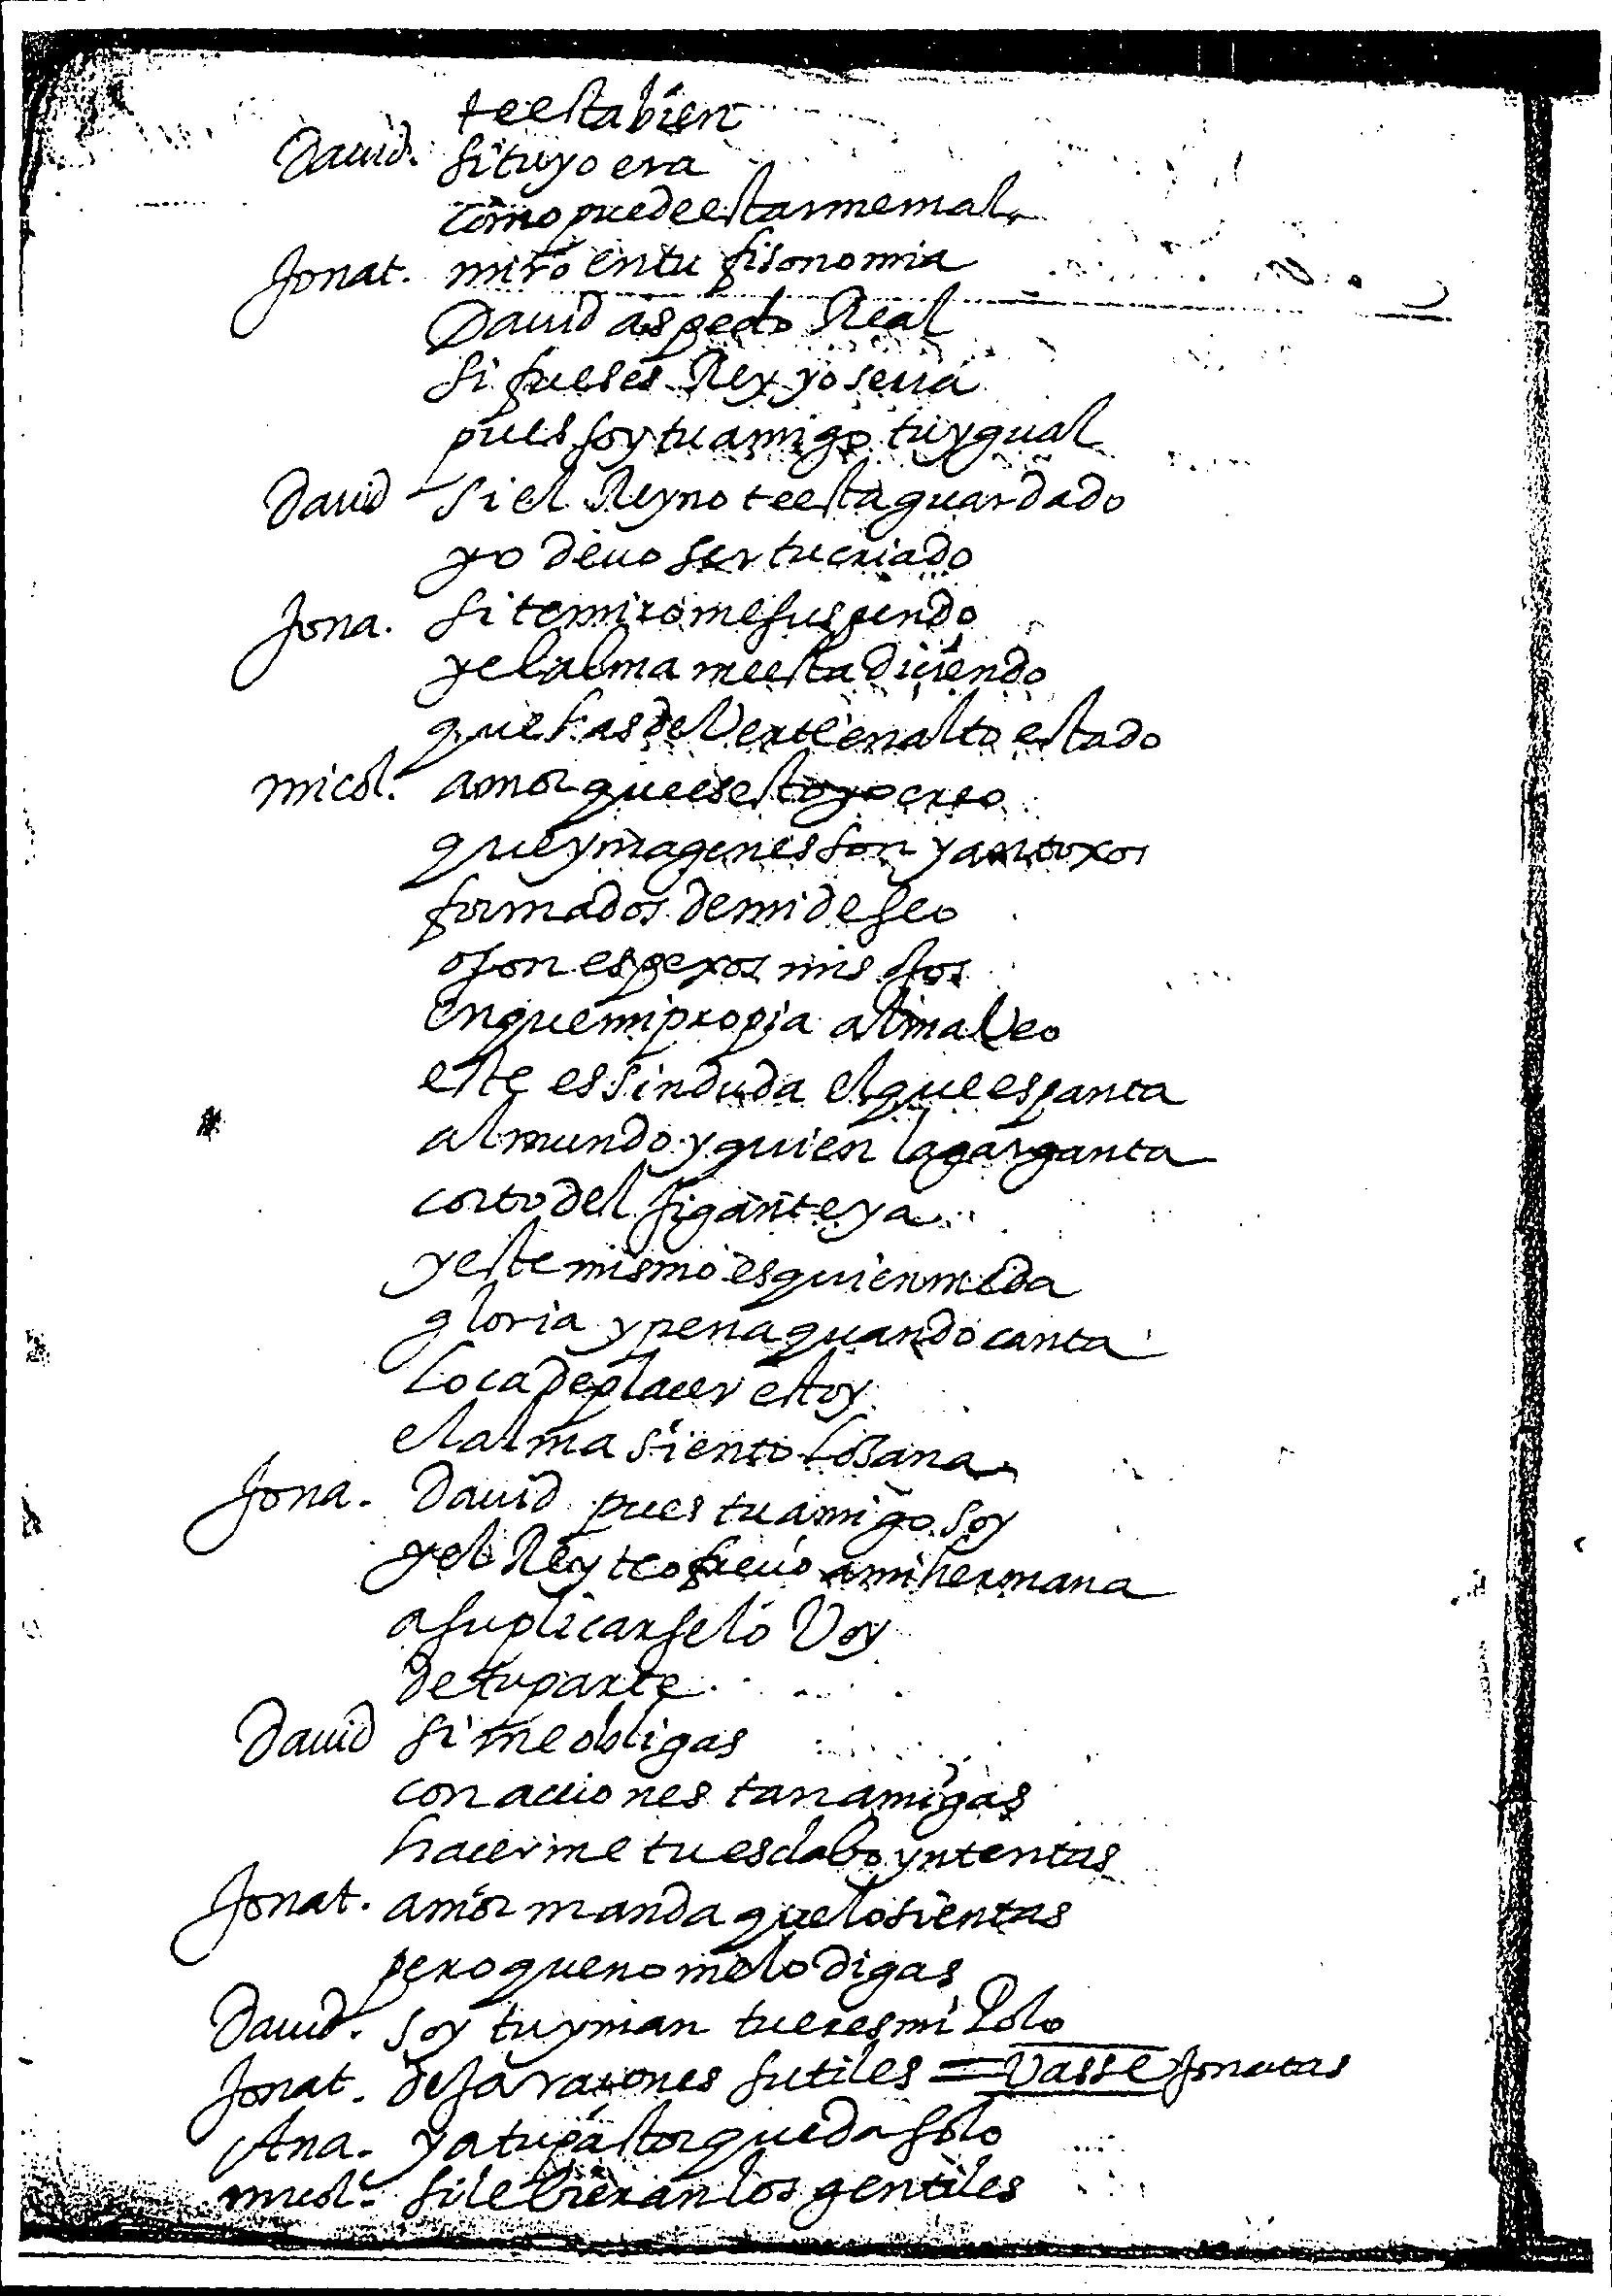 te esta bien
Dauid. si tuyo era
como puede estarme mal
Jonat. miro en tu fisonomia
Dauid aspecto Real
si fueses Rey yo seria
pues soy tu amigo tu ygual
Dauid si el Reyno te esta guardado
yo deuo ser tu criado
Jona. si te miro me suspendo
y el alma me esta diciendo
que has de Verte en alto estado
micol. amor que es esto yo creo
que ymagenes son y antoxos
formados de mi deseo
o son espexos mis ojos
en que mi propia alma Veo
este es sin duda el que espanta
al mundo y quien la garganta
corto del gigante ya
y este mismo es quien me da
gloria y pena quando canta
Loca de placer estoy
el alma siento Lozana
Jona. Dauid pues tu amigo soy
y el Rey te ofrecio a mi hermana
a suplicarselo Voy
de tu parte
Dauid si me obligas
con acciones tan amigas
hacerme tu esclabo yntentas
Jonat. amor manda que lo sientas
pero que no me lo digas
Dauid. soy tu yman tu eres mi Polo
Jonat. deja raçones sutiles = Vasse Jonatas
Ana. ya tu pastor queda solo
micol. si le bieran los gentiles